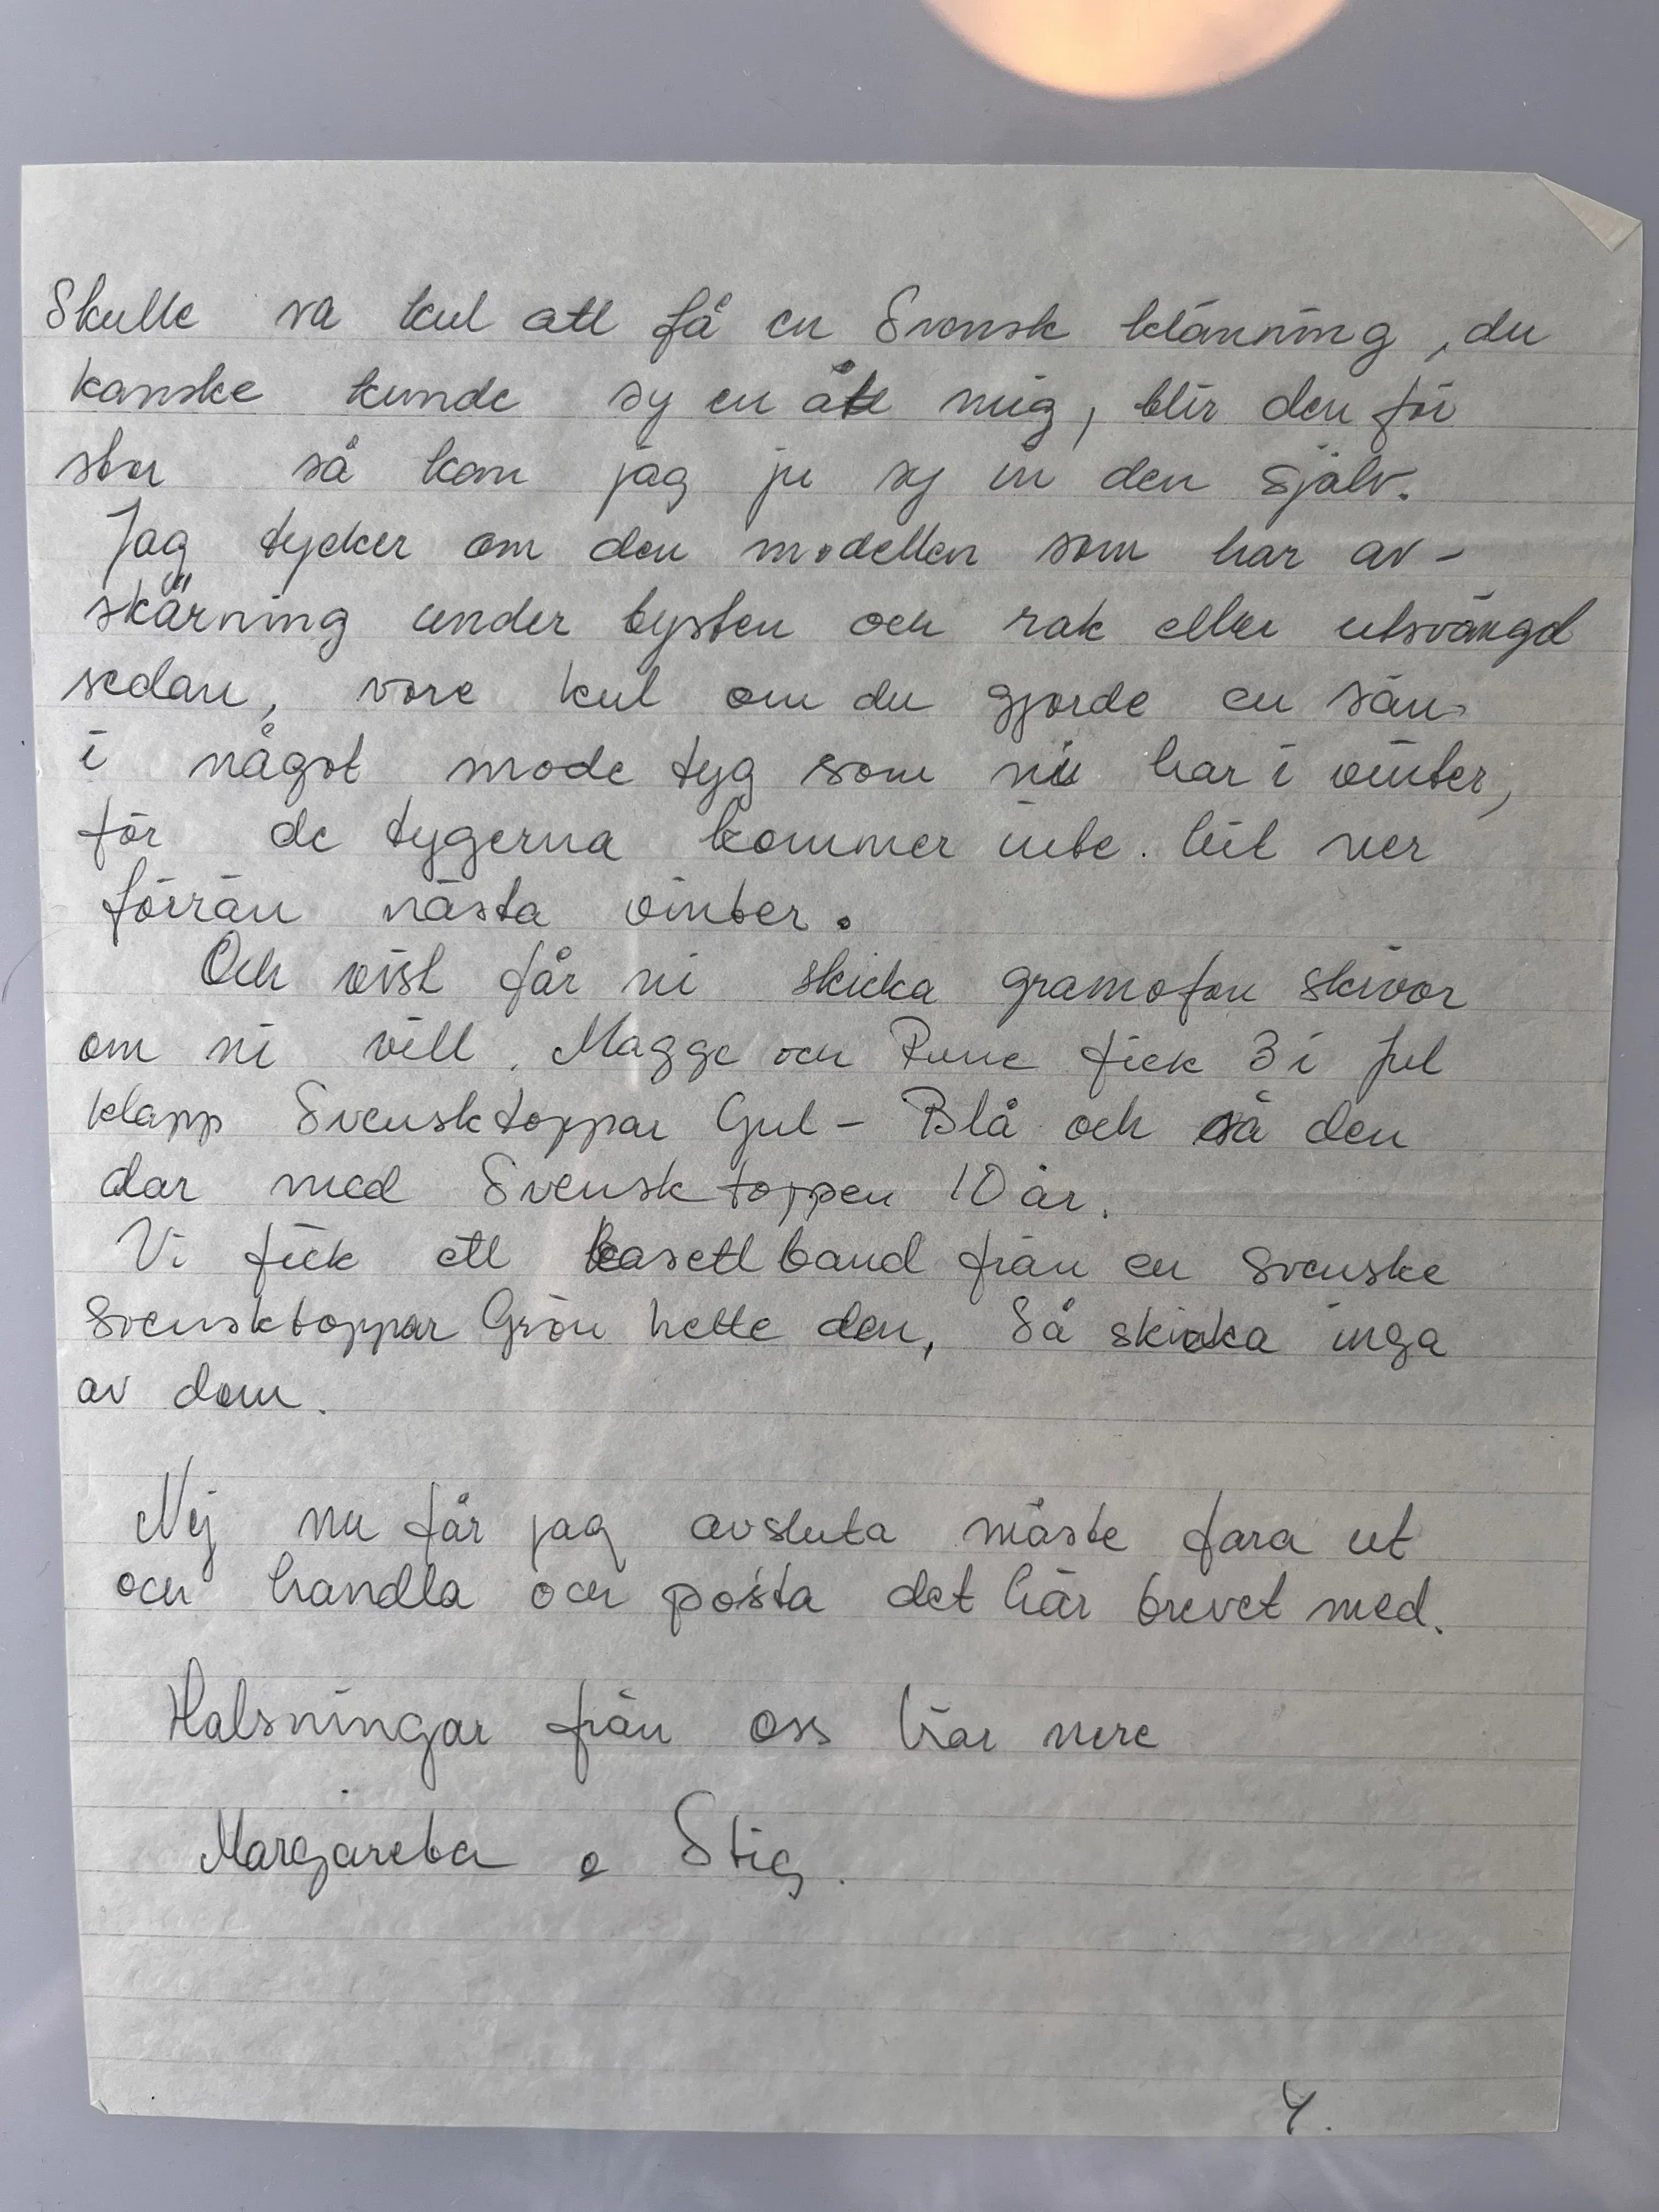 Skulle va kul att få en Svensk klänning, du
kanske kunde sy en åt mig, blir den för
stor så kan jag ju sy in den själv.
Jag tycker om den modellen som har av-
skärning under bysten och rak eller utsvängd
sedan, vore kul om du gjorde en sån
i något mode tyg som ni har i vinter,
för de tygerna kommer inte hit ner
förrän nästa vinter.
Och visst får ni skicka gramofon skivor
om ni vill. Magge och Rune fick 3 i jul
klapp Svensktoppar Gul - Blå och så den
där med Svensk toppen 10 år.
Vi fick ett kasett band från en svenske
Svensktoppar Grön hette den, Så skicka inga
av dom.
Nej nu får jag avsluta måste fara ut
och handla och posta det här brevet med.
Hälsningar från oss här nere
Margareta o Stig.
4.